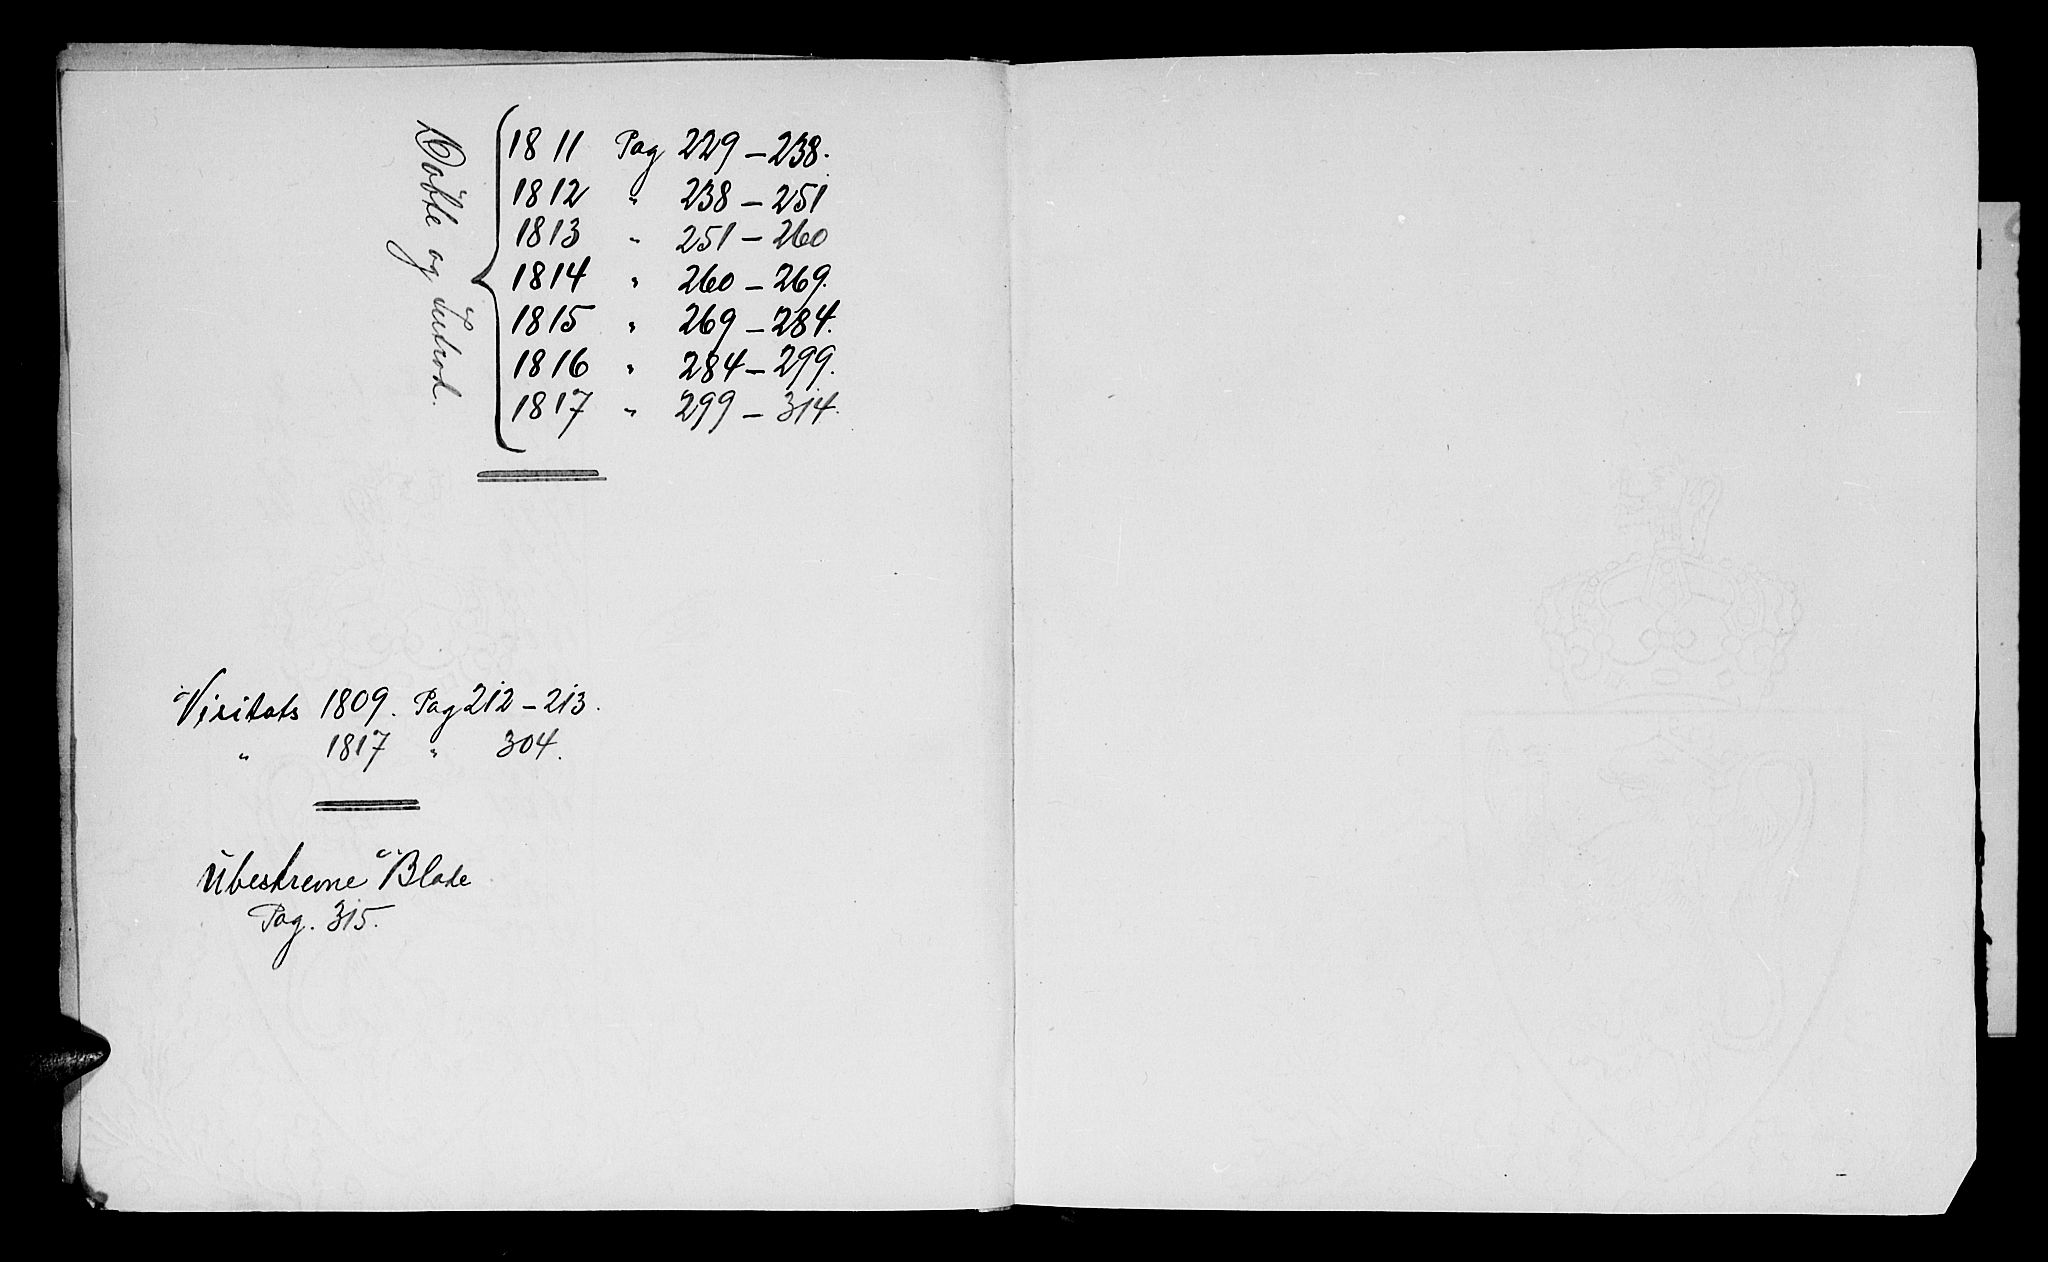 Döbte og Introd.
1811 Pag 229 – 238.
1812 " 238 – 251
1813 " 251 – 260
1814 " 260 – 269.
1815 " 269 – 284.
1816 " 284 – 299.
1817 " 299 – 314.
Visitats 1809. Pag 212 – 213.
" 1817 " 304.
Ubeskrevne Blade
Pag. 315.